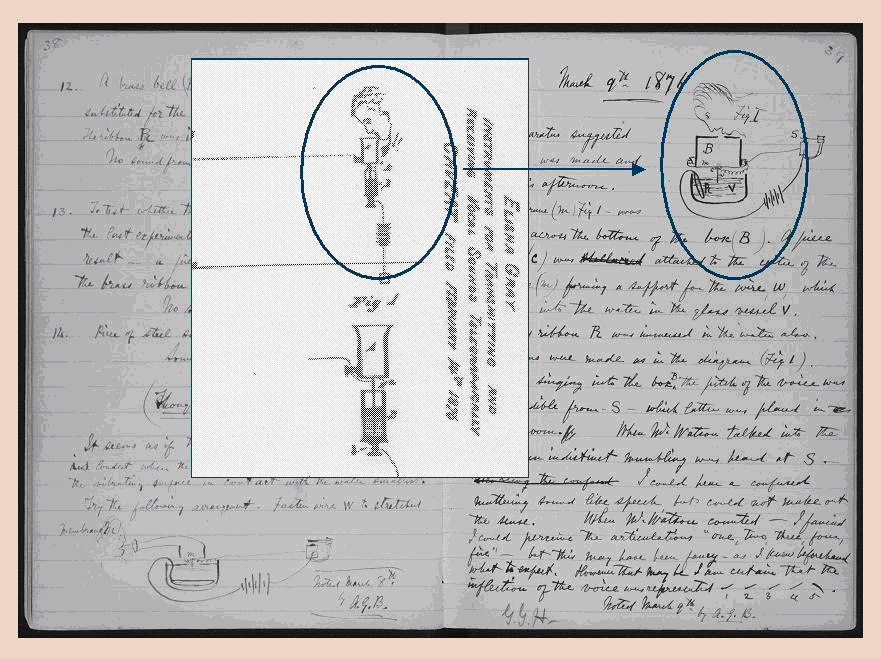 38
12. A brass bell
substituted for the
The ribbon R was
No sound from
13. To test whether
the last experiment
result — a
the brass ribbon
No
14. Piece of steel
It seems as if
the vibrating surface in contact with the water smallest.
Try the following arrangement. Fasten wire W to stretched
membrane
m
Noted March 8th
by A.G.B.
Elisha Gray
Instruments for Transmitting and
Receiving Vocal Sounds Telegraphically
Caveat Filed February 14th 1876
Fig 1
39
March 9th 1876
Fig I
S
B
m
R V
aratus suggested
was made and
s afternoon.
(m) Fig 1 - was
across the bottom of the box (B). A piece
(c) was attached to the centre of the
(m) forming a support for the wire W, which
into the water in the glass vessel V.
ribbon R was immersed in the water also.
were made as in the diagram (Fig 1).
singing into the box B, the pitch of the voice was
dible from - S - which latter was placed in
When Mr Watson talked into the
an indistinct mumbling was heard at S. —
I could hear a confused
muttering sound like speech but could not make out
the sense. When Mr Watson counted — I fancied
I could perceive the articulations "one, two, three, four,
five" — but this may have been fancy - as I knew beforehand
what to expect. However that may be I am certain that the
inflection of the voice was represented
1 2 3 4 5
Noted March 9th
by A.G.B.
G.G.H.